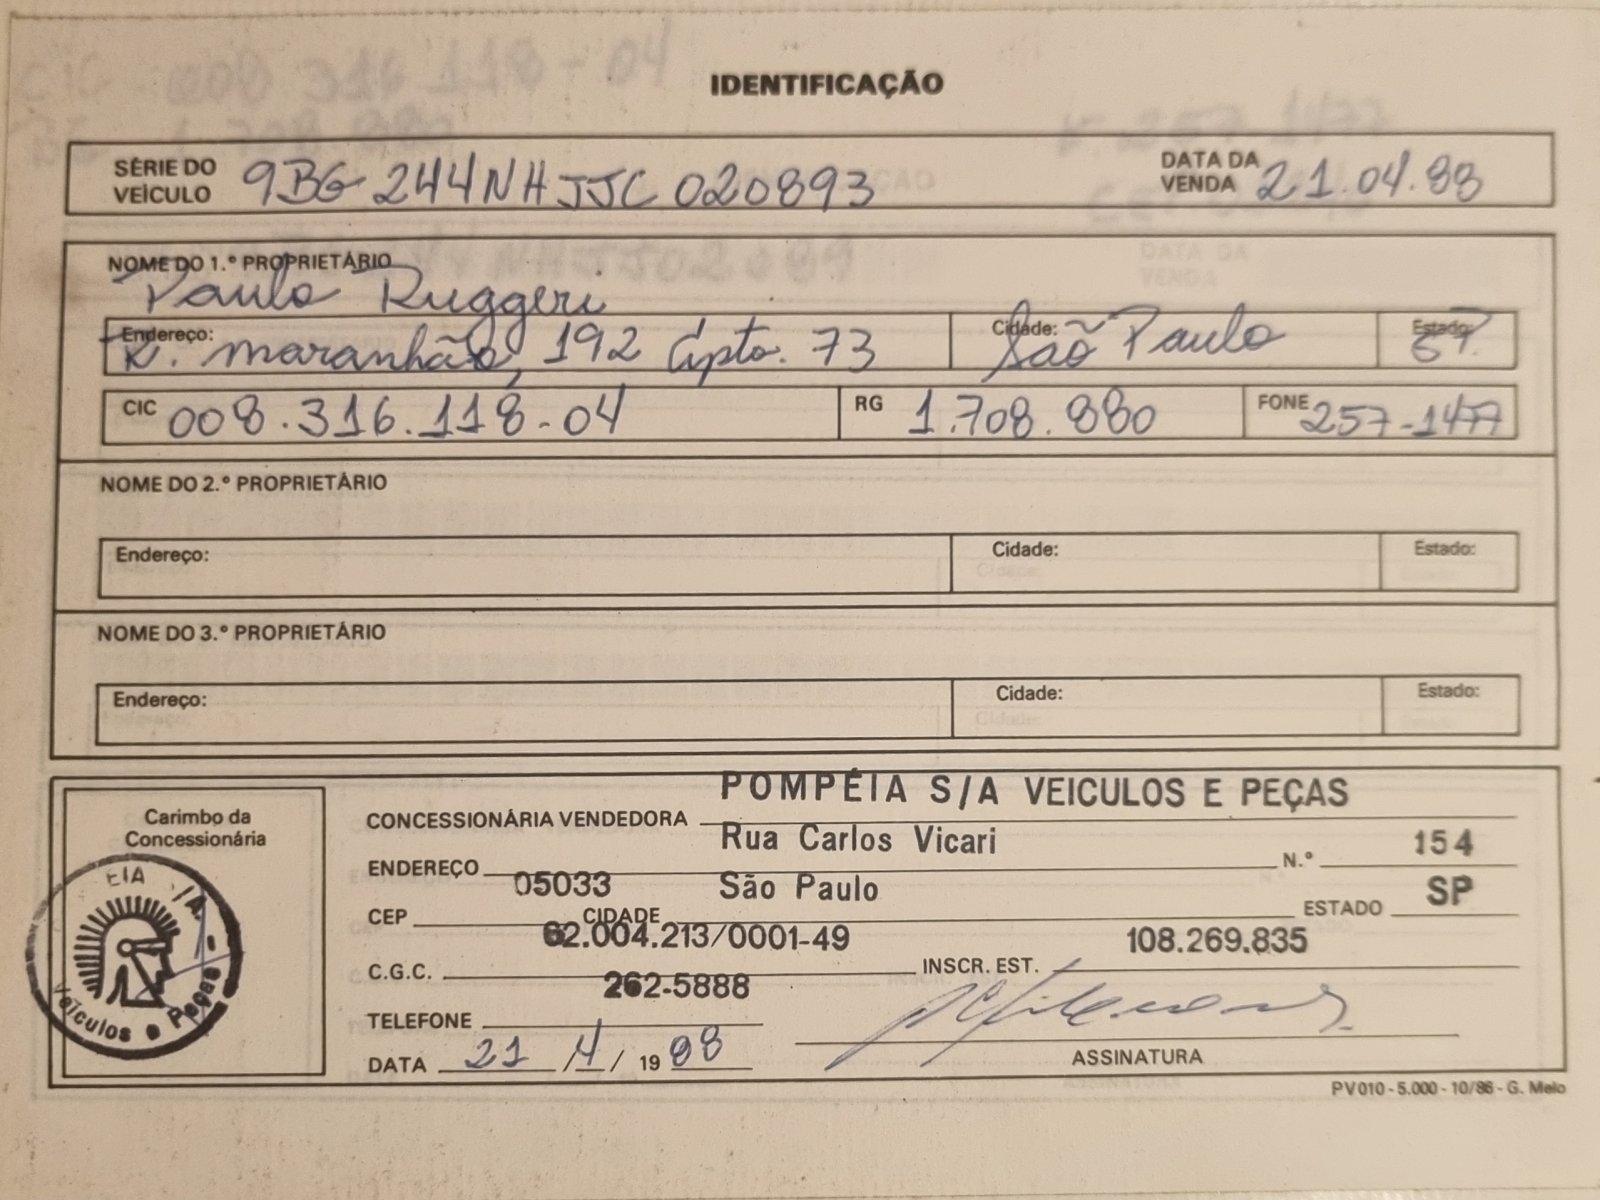 IDENTIFICAÇÃO
SÉRIE DO VEÍCULO 9BG244NHJJC020893 DATA DA VENDA 21.04.88
NOME DO 1.º PROPRIETÁRIO
Paulo Ruggeri
Endereço: R. maranhão, 192 Apto. 73 Cidade: São Paulo Estado: SP.
CIC 008.316.118-04 RG 1.708.880 FONE 257-1477
NOME DO 2.º PROPRIETÁRIO
Endereço: Cidade: Estado:
NOME DO 3.º PROPRIETÁRIO
Endereço: Cidade: Estado:
Carimbo da
Concessionária
EIA /A.
Veículos e Peças -
CONCESSIONÁRIA VENDEDORA POMPÉIA S/A VEICULOS E PEÇAS
ENDEREÇO Rua Carlos Vicari N.º 154
CEP 05033 CIDADE São Paulo ESTADO SP
C.G.C. 62.004.213/0001-49 INSCR. EST. 108.269.835
TELEFONE 262-5888
DATA 21 /4/ 1988 ASSINATURA
PV010 - 5.000 - 10/86 - G. Melo